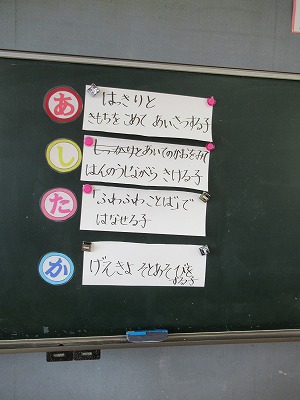 あ
はっきりと
きもちをこめて あいさつする子
し
しっかりとあいてのかおをみて
はんのうしながら きける子
た
「ふわふわことば」で
はなせる子
か
げんきよ そとあそびを
する子